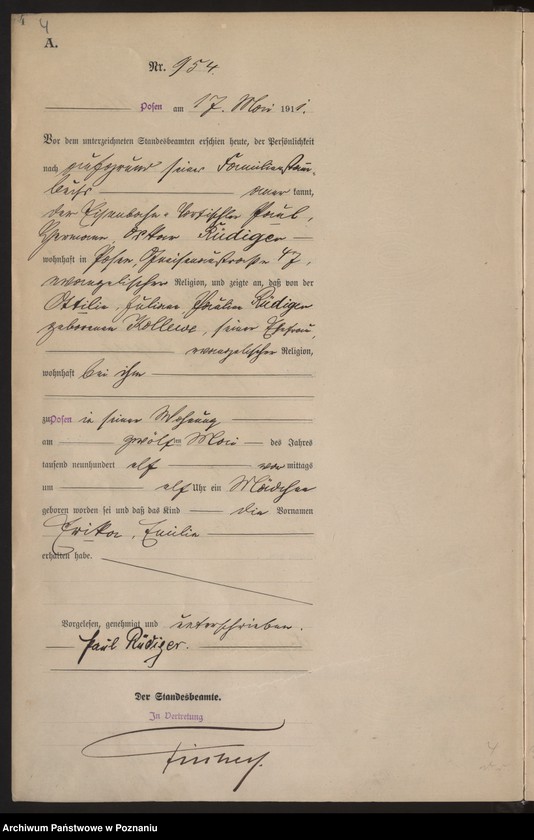 4
A.
Nr. 954.
Posen am 17. Mai 1911.
Vor dem unterzeichneten Standesbeamten erschien heute, der Persönlichkeit
nach aufgrund seines Familienstamm-
buchs anerkannt,
der Eisenbahn-Vortischler Paul,
Hermann, Oskar Rüdiger
wohnhaft in Posen, Gneisenaustrasse 47,
evangelischer Religion, und zeigte an, daß von der
Ottilie, Juliane Pauline Rüdiger
geborenen Kollewe, seiner Ehefrau,
evangelischer Religion,
wohnhaft bei ihm
zu Posen in seiner Wohnung
am zwölften Mai des Jahres
tausend neunhundert elf vormittags
um elf Uhr ein Mädchen
geboren worden sei und daß das Kind die Vornamen
Erika, Emilie
erhalten habe.
Vorgelesen, genehmigt und unterschrieben.
Paul Rüdiger.
Der Standesbeamte.
In Vertretung
4
Archiwum Państwowe w Poznaniu